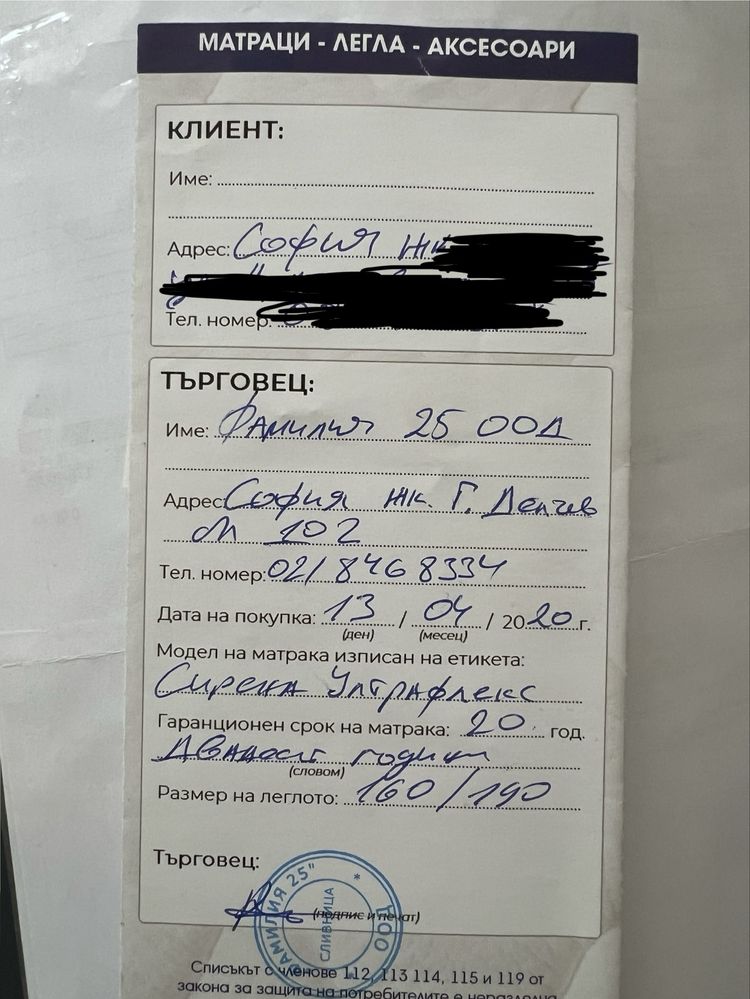 МАТРАЦИ - ЛЕГЛА - АКСЕСОАРИ
КЛИЕНТ:
Име:
Адрес: София жк
Тел. номер:
ТЪРГОВЕЦ:
Име: Фамилия 25 ООД
Адрес: София жк. Г. Делчев
бл 102
Тел. номер: 02/8468334
Дата на покупка: 13 / 04 / 2020 г.
(ден) (месец)
Модел на матрака изписан на етикета:
Сирена Ултрафлекс
Гаранционен срок на матрака: 20 год.
Двадесет години
(словом)
Размер на леглото: 160/190
Търговец:
(подпис и печат)
ФАМИЛИЯ 25" ООД *
СЛИВНИЦА
Списъкът с членове 112, 113 114, 115 и 119 от
закона за защита на потребителите е неразделна